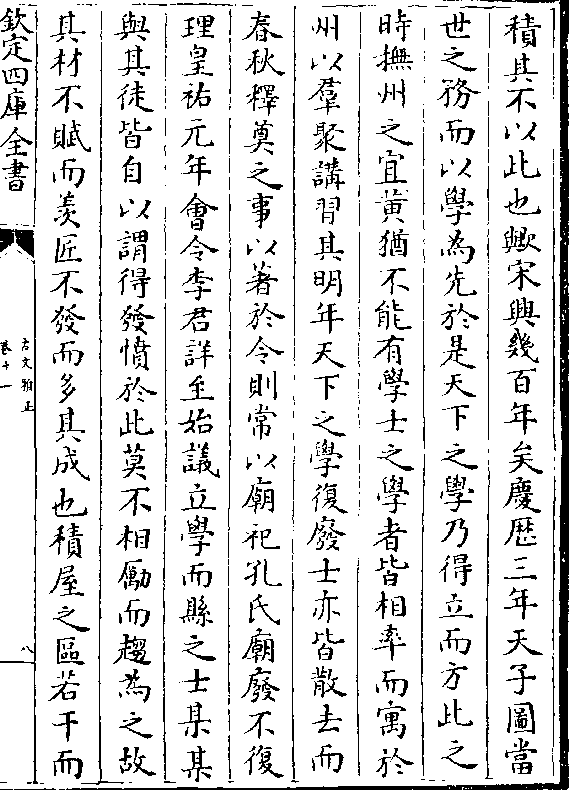 積其不以此也歟宋興幾百年矣慶厯三年天子圖當
世之務而以學為先於是天下之學乃得立而方此之
時撫州之宜黄猶不能有學士之學者皆相率而寓於
州以羣聚講習其明年天下之學復廢士亦皆散去而
春秋釋奠之事以著於令則常以廟祀孔氏廟廢不復
理皇祐元年會令李君詳至始議立學而縣之士某某
與其徒皆自以謂得發憤於此莫不相勵而趨為之故
其材不賦而羨匠不發而多其成也積屋之區若干而
欽定四庫全書
古文雅正
卷十一
八